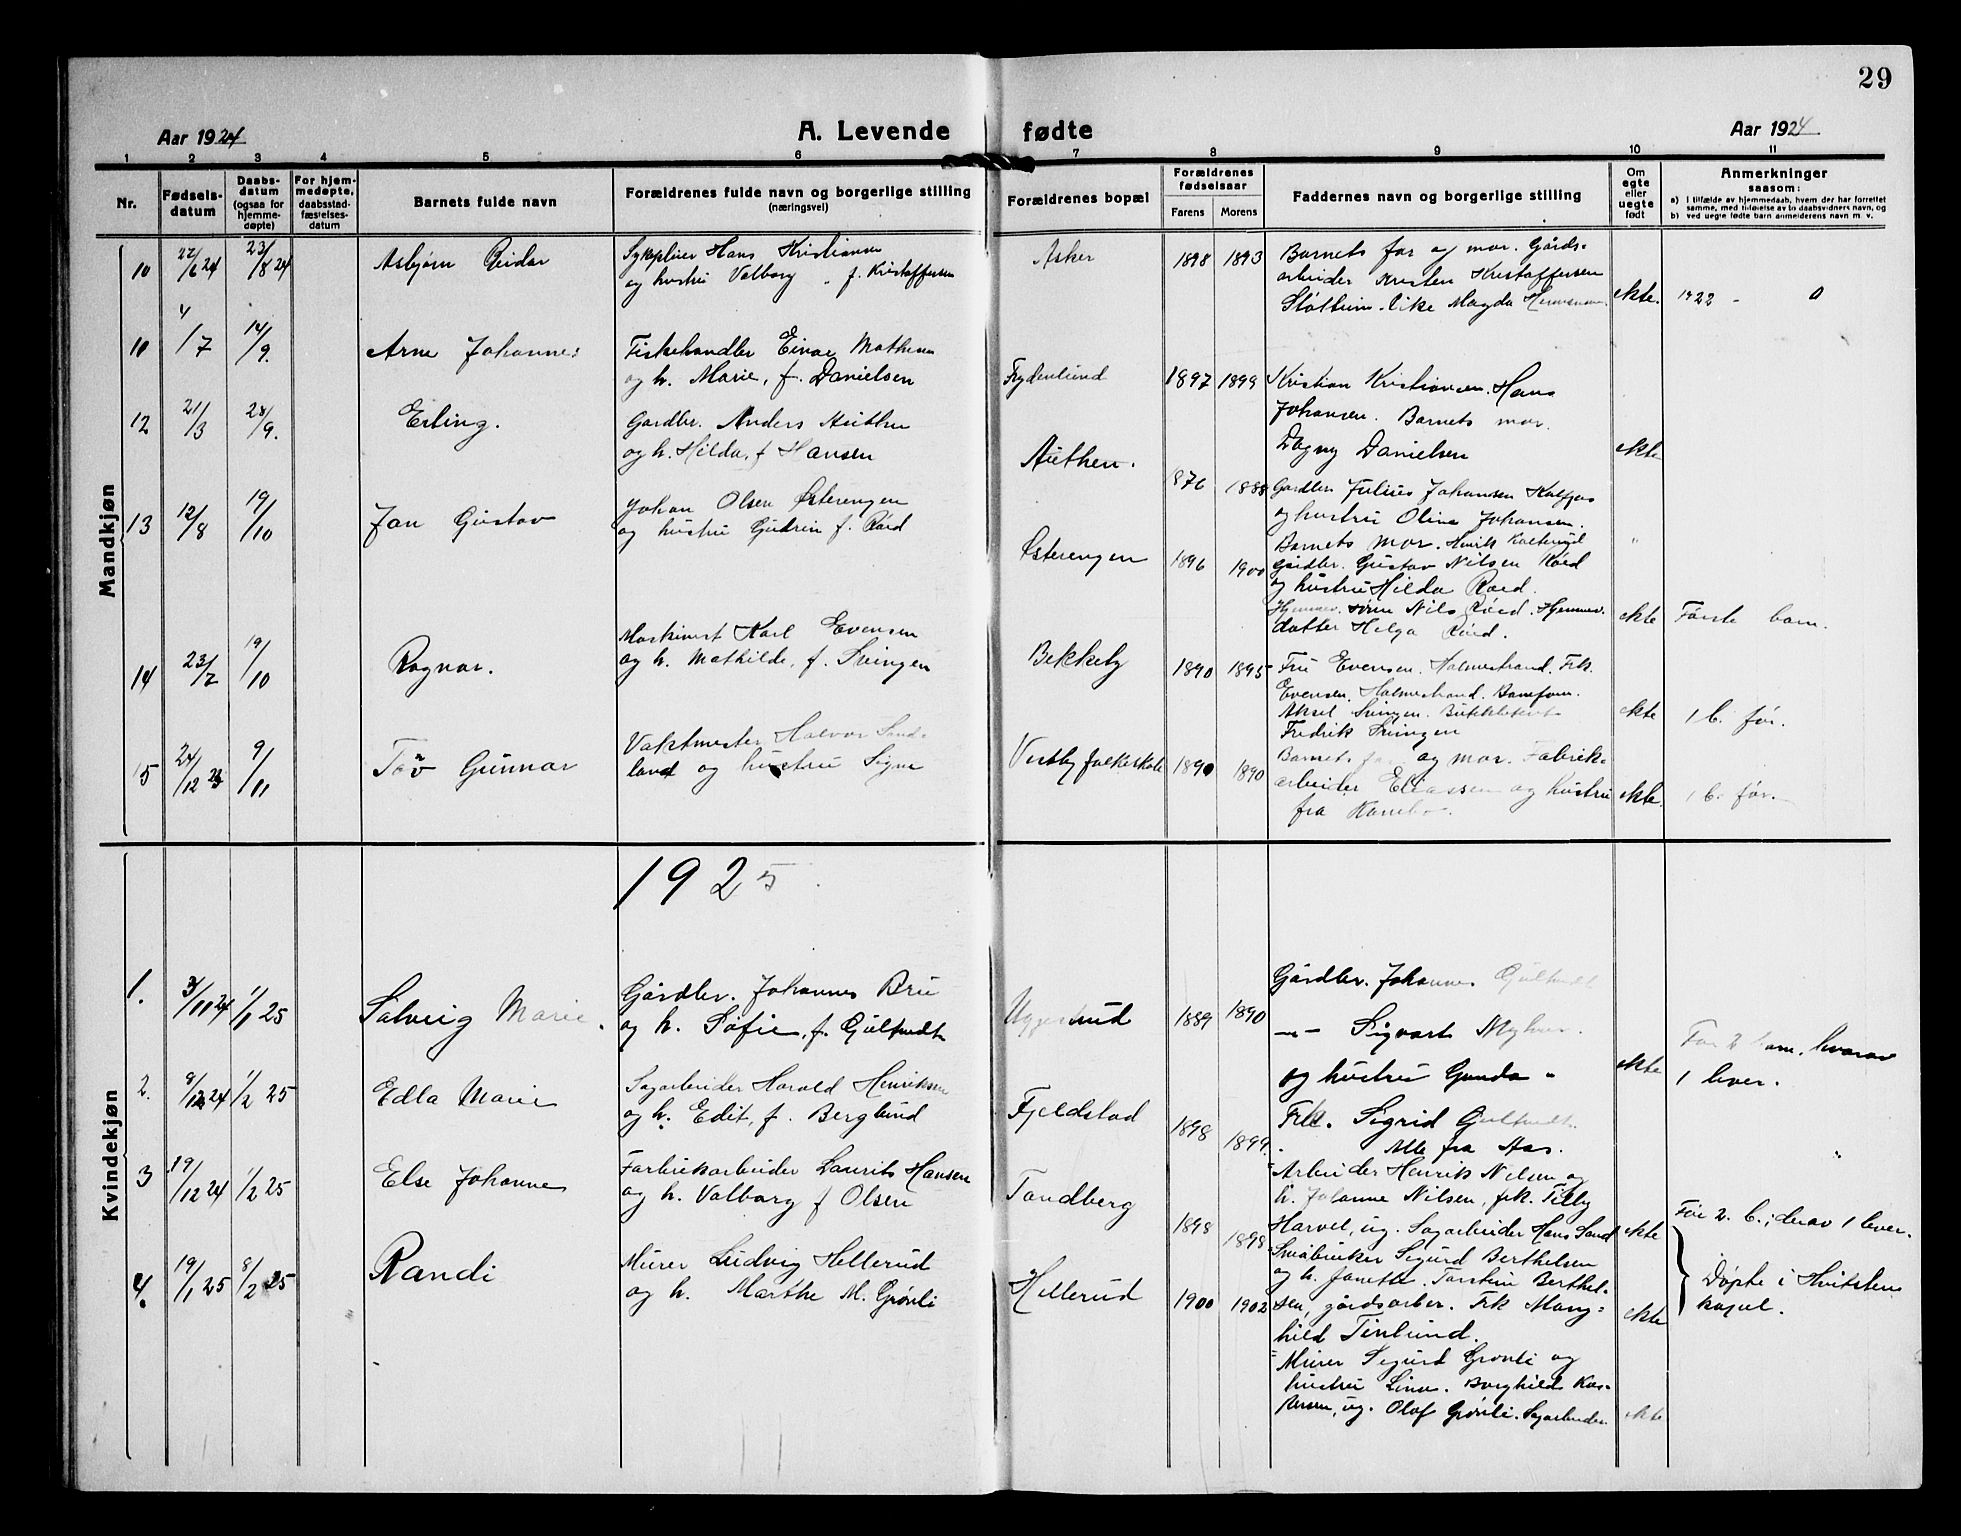 29
Aar 1924
A. Levende fødte
Aar 1924
1 2 3 4 5 6 7 8 9 10 11
Nr.
Fødselsdatum
Daabsdatum (ogsaa for hjemmedøpte)
For hjemmedøpte, daabsstadfæstelsesdatum
Barnets fulde navn
Forældrenes fulde navn og borgerlige stilling
(næringsvei)
Forældrenes bopæl
Forældrenes fødselsaar
Farens Morens
Faddernes navn og borgerlige stilling
Om egte eller uegte født
Anmerkninger
saasom:
a) I tilfælde av hjemmedaab, hvem der har forrettet
samme, med tilføielse av to daabsvidners navn, og
b) ved uegte fødte barn anmelderens navn m. v.
Mandkjøn
10 22/6 24 23/8 24 Asbjørn Reidar
Hans Kristiansen
og hustru Valborg f. Kristoffersen
Asker 1898 1893
Barnets far og mor. Gårds-
arbeider Kristen Kristoffersen
like Magda
ekte. 1922 - 0
10 4/7 14/9 Arne Johannes
Fiskehandler Einar Mathisen
og h. Marie, f. Danielsen
Frydenlund 1897 1899
Kristian Kristiansen. Hans
Johansen. Barnets mor.
Dagny Danielsen
ekte
12 21/3 28/9. Erling.
Gardbr. Anders Authen
og h. Hilda, f Hansen
Authen. 876 1888
Gardbr. Julius Johansen
og hustru Oline Johansen.
Barnets mor. Henrik
"
13 12/8 19/10 Jan Gustav
Johan Olsen Østerengen
og hustru Gudrun f. Røed
Østerengen 1896 1900
Gardbr. Gustav Nilsen Røed
og hustru Hilda Røed.
Hjemmev. sønn Nils Røed. Hjemmev.
datter Helga Røed.
ekte Første barn.
14 23/7 19/10 Ragnar.
Maskinist Karl Evensen
og h. Mathilde, f. Svingen
Bekkeby 1890 1895
Fru Evensen. Holmestrand. Frk.
Evensen. Holmestrand.
Aksel Svingen.
Fredrik Svingen
ekte 1 b. før.
15 24/12 23 9/11 Tov Gunnar
Vaktmester Halvor Sand-
land og hustru Signe
Vestby folkeskole 1890 1890
Barnets far og mor. Fabrik-
arbeider Eliassen og hustru
fra Kambo.
ekte. 1 b. før.
Kvindekjøn
1925
1. 3/11 24 1/1 25 Solveig Marie.
Gårdbr. Johannes Bru
og h. Sofie, f. Gultvedt
Uggerud 1889 1890
Gårdbr. Johannes Gultvedt
-"- Sigvart Myhrer.
og hustru Gunda "
Frk. Sigrid Gultvedt.
Alle fra Aas.
ekte
For 2 barn, hvorav
1 lever.
2. 9/12 24 1/2 25 Edla Marie
Sagarbeider Harald Henriksen
og h. Edit, f. Berglund
Fjeldstad 1898 1899.
Arbeider Henrik Nilsen og
h. Johanne Nilsen, frk. Tilly
Harvel, ug. Sagarbeider Hans Sand
ekte "
3 19/12 24 1/2 25 Else Johanne
Farbrikarbeider Laurits Hansen
og h. Valborg f Olsen
Tandberg 1898 1898
Småbruker Sigurd Berthelsen
og h. Janette. Torstein Berthel-
sen, gårdsarber. Frk Mang-
hild Tinlund.
ekte
Før 2. b.; derav 1 lever.
4. 19/1 25 8/2 25 Randi
Murer Ludvig Hellerud
og h. Marthe M. Grønli
Hellerud 1900 1902
Murer Sigurd Grønli og
hustru Lina. Borghild Kas-
persen, ug. Olaf Grønli. Sagarbeider
ekte
Døpte i Hvitsten
kapel.